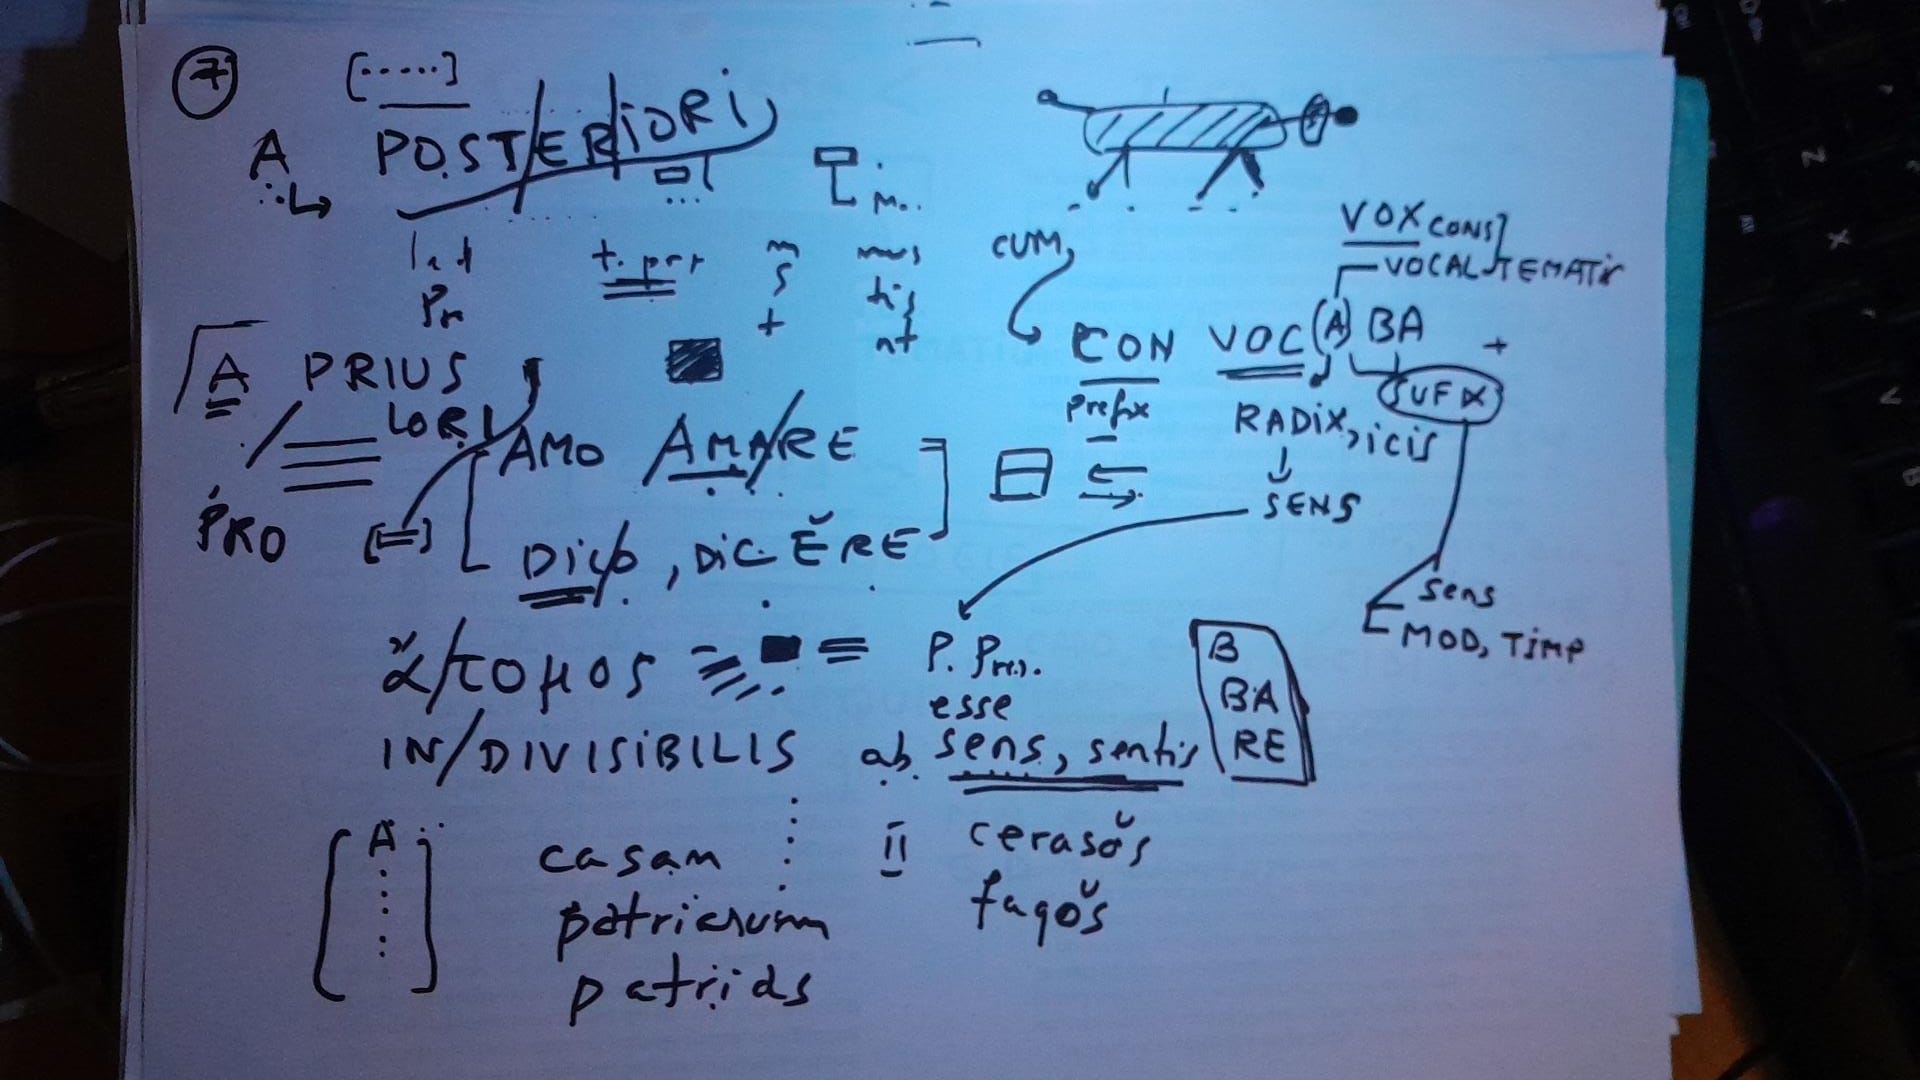 7
[.....]
A POSTERIORI
t. per m mus
s tis
t nt
CUM,
VOX CONS
VOCAL TEMATIC
CON VOC (A) BA +
prefix
SUFIX
RADIX, icis
SENS
sens
MOD, TIMP
A PRIUS
IORI
PRO
AMO AMARE
DICO, DIC ĔRE
ἄ/τομος
IN/DIVISIBILIS
P. Pres.
esse
ab sens, sentis
B
BA
RE
A
casam
patriarum
patrias
II
cerasŏs
fagŏs